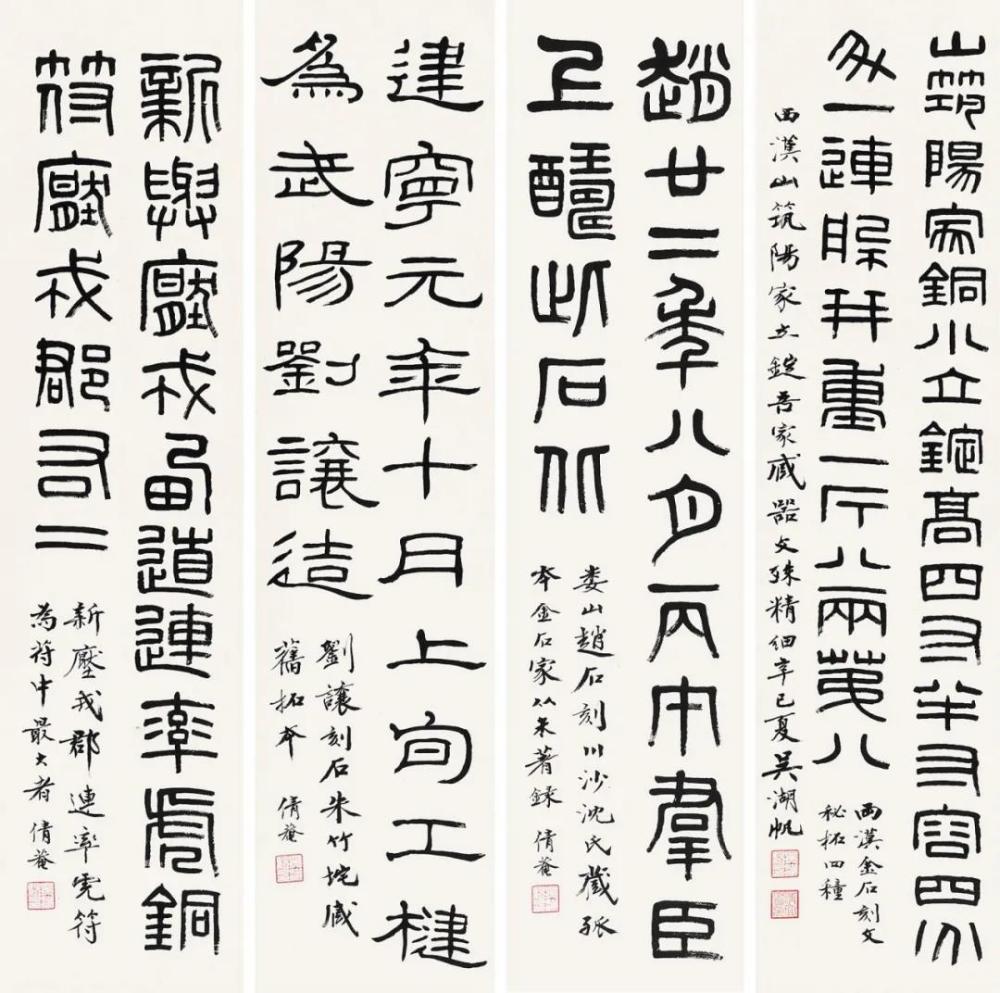 山筑陽家銅小立錠高四寸半寸容四
一連并重一斤八兩第八
西漢山筑陽家立錠吾家藏器文殊精細辛巳夏吳湖帆
兩漢金石刻文
秘拓四種
趙廿二年八月丙寅群臣
上醻此石北
婁山趙石刻川沙沈氏藏孤
本金石家從未著錄 倩菴
建寧元年十月上旬工楗
為武陽劉讓造
劉讓刻石朱竹垞藏
舊拓本 倩菴
新與壓戎西道連率虎銅
符壓戎郡右二
新壓戎郡連率虎符
為符中最大者 倩菴